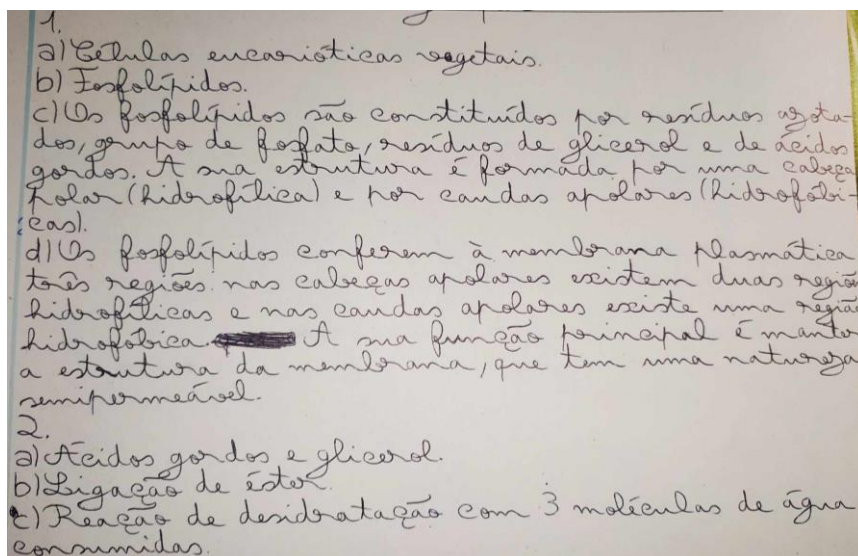 1.
a) Células eucarióticas vegetais.
b) Fosfolípidos.
c) Os fosfolípidos são constituídos por resíduos azota-
dos, grupo de fosfato, resíduos de glicerol e de ácidos
gordos. A sua estrutura é formada por uma cabeça
polar (hidrofílica) e por caudas apolares (hidrofóbi-
cas).
d) Os fosfolípidos conferem à membrana plasmática
três regiões: nas cabeças apolares existem duas região
hidrofílicas e nas caudas apolares existe uma região
hidrofóbica. A sua função principal é manter
a estrutura da membrana, que tem uma natureza
semipermeável.
2.
a) Ácidos gordos e glicerol.
b) Ligação de éster.
c) Reação de desidratação com 3 moléculas de água
consumidas.